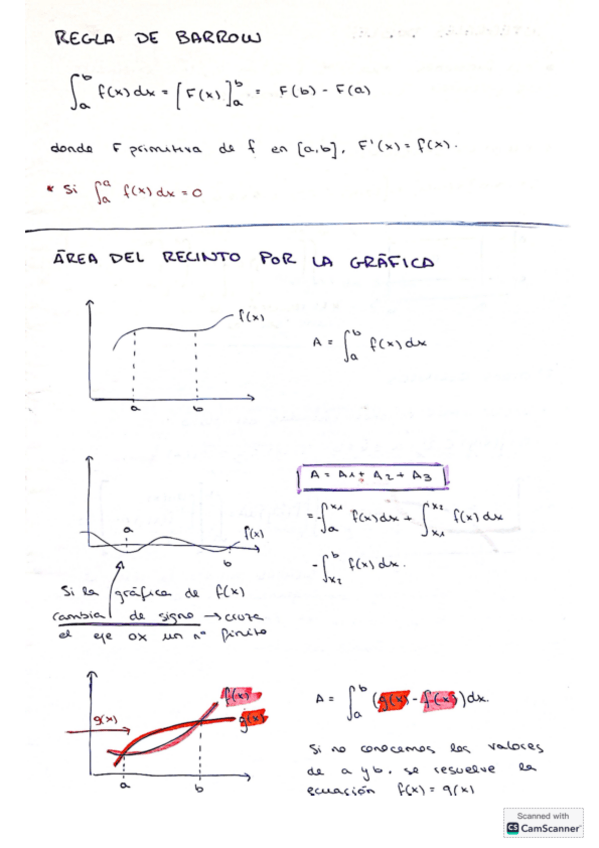 REGLA DE BARROW
∫_a^b f(x) dx = [F(x)]_a^b = F(b) - F(a)
donde F primitiva de f en [a,b], F'(x) = f(x).
* Si ∫_a^a f(x) dx = 0
ÁREA DEL RECINTO POR LA GRÁFICA
f(x)
a b
A = ∫_a^b f(x) dx
a
f(x)
b
A = A1 + A2 + A3
= -∫_a^x1 f(x) dx + ∫_x1^x2 f(x) dx
- ∫_x2^b f(x) dx.
Si la gráfica de f(x)
cambia de signo → cruza
el eje OX un nº finito
f(x)
g(x)
g(x)
a b
A = ∫_a^b (g(x) - f(x)) dx.
Si no conocemos los valores
de a y b, se resuelve la
ecuación f(x) = g(x)
Scanned with
CS CamScanner